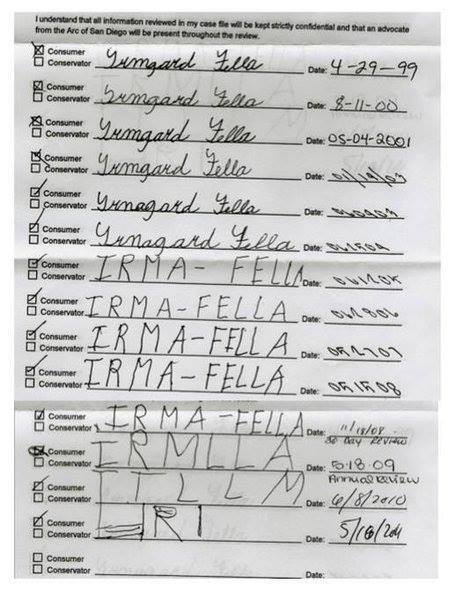 I understand that all information reviewed in my case file will be kept strictly confidential and that an advocate
from the Arc of San Diego will be present throughout the review.
Consumer
Conservator Yrmgard Fella Date: 4-29-99
Consumer
Conservator Yrmgard Fella Date: 8-11-00
Consumer
Conservator Yrmgard Fella Date: 05-04-2001
Consumer
Conservator Yrmgard Fella Date:
Consumer
Conservator Yrnagard Fella Date:
Consumer
Conservator Yrnagard Fella Date:
Consumer
Conservator IRMA- FELLA Date:
Consumer
Conservator IRMA-FELLA Date:
Consumer
Conservator IRMA-FELLA Date:
Consumer
Conservator IRMA-FELLA Date:
Consumer
Conservator IRMA-FELLA Date: 11/18/08
30 DAY REVIEW
Consumer
Conservator IRMLLA Date: 5-18-09
Annual Review
Consumer
Conservator ITLLM Date: 6/8/2010
Consumer
Conservator Date: 5/18/201
Consumer
Conservator Date: